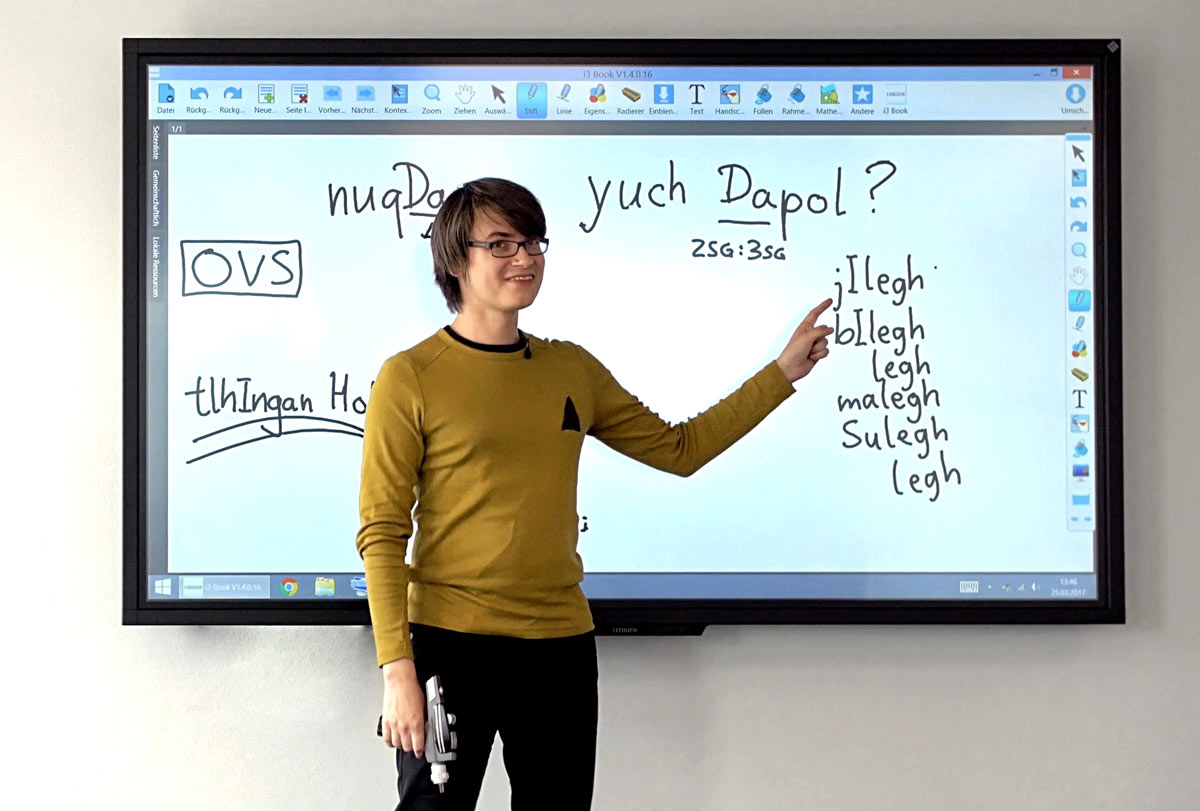 i3 Book V1.4.0.16
Datei Rückg... Rückg... Neue... Seite l... Vorher... Nächst... Kontex... Zoom Ziehen Auswä... Stift Linie Eigens... Radierer Einblen... Text Handsc... Füllen Rahme... Mathe... Andere i3 Book Umsch...
1/1
Seitenliste
Gemeinschaftlich
Lokale Ressourcen
nuqDa yuch Dapol?
2SG:3SG
OVS
jIlegh
bIlegh
legh
malegh
Sulegh
legh
tlhIngan Ho
i3 Book V1.4.0.16
13:46
25.03.2017
i3TOUCH